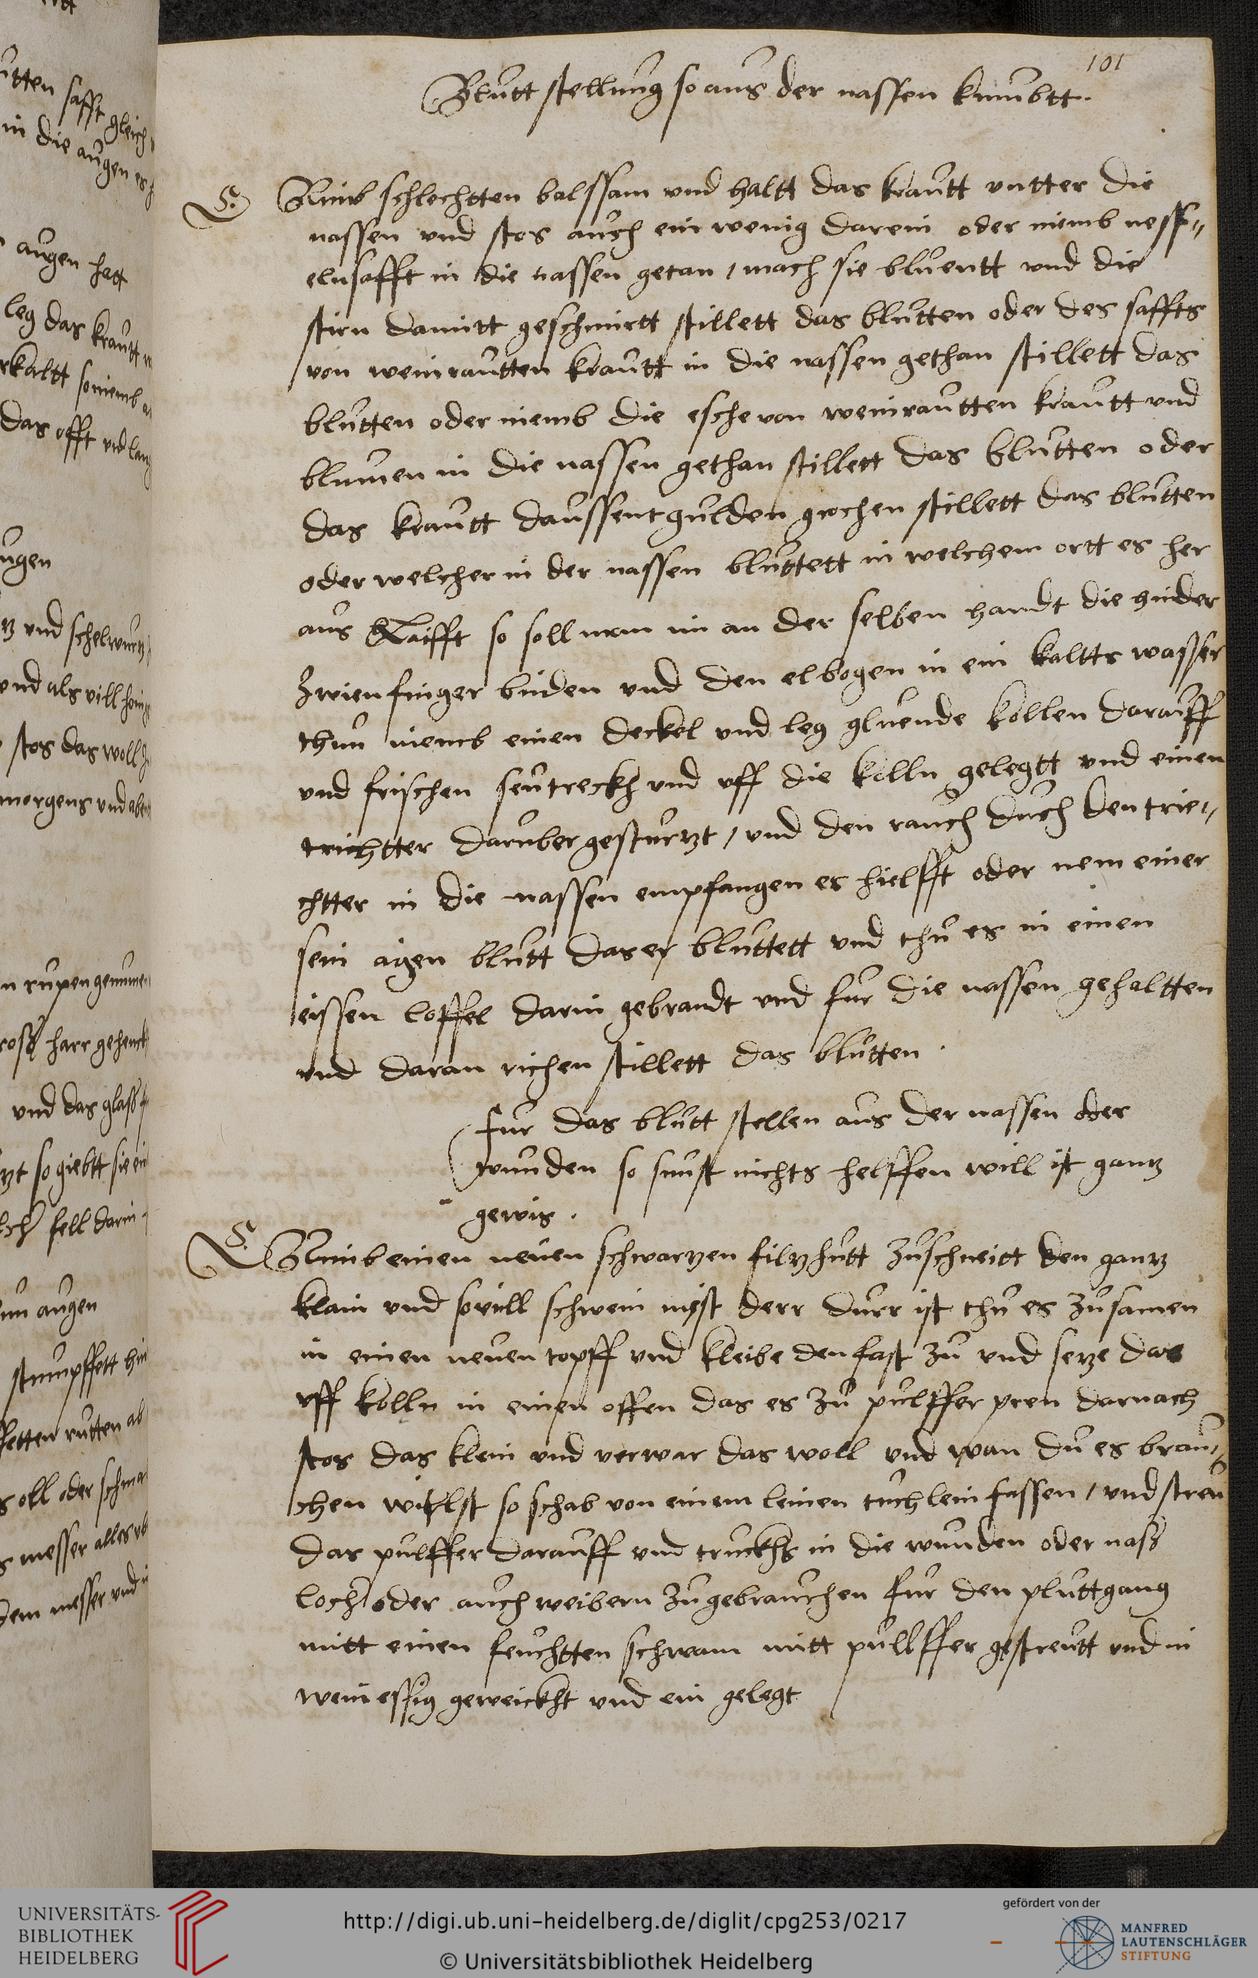 101
Blutt stellung so aus der nassen kumbtt.
S. Nimb schlechtten balssam vnd haltt das krautt vntter die
nassen vnd stos auch ein wenig darein oder niemb ness-
elnsafft in die nassen getan / mach sie bluentt vnd die
stirn damitt geschmirtt stillett das blutten oder des saffts
von weinrautten krautt in die nassen gethan stillett das
blutten oder niemb die esche von weinrautten krautt vnd
blumen in die nassen gethan stillett das blutten oder
das krautt daussentgulden gerochen stillett das blutten
oder welcher in der nassen bluttett in welchem ortt es her
aus so soll man im an der selben handt die hinder
zwien finger binden vnd den elbogen in ein kaltts wasser
thun niemb einen deckel vnd leg gluende kollen darauff
vnd frischen seutreckh vnd vff die kolln gelegtt vnd einen
trichtter daruber gesturtzt / vnd den rauch durch den trie-
chtter in die nassen empfangen es hielfft oder nem einer
sein aigen blutt das er bluttett vnd thu es in einen
eissen loffel darin gebrandt vnd fur die nassen gehaltten
vnd daran richen stillett das blutten .
fur das blutt stellen aus der nassen oder
wunden so sunst nichts helffen will ist gantz
gewis .
S. Nimb einen neuen schwartzen filtzhutt zuschneitt den gantz
klain vnd souill schwein mist derr durr ist thu es zusamen
in einen neuen topff vnd kleibe den fast zu vnd setze das
vff kolln in einen offen das es zu pulffer pren darnach
stos das klein vnd verwar das woll vnd wan du es brau-
chen wiellst so schab von einem leinen tuchlein fassen / vnd streu
das pulffer darauff vnd truckhs in die wunden oder nass
loch / oder auch weibern zugebrauchen fur den pluttgang
mitt einen feuchtten schwam mitt pullffer gestreutt vnd in
wein essig geweickht vnd ein gelegt
UNIVERSITÄTS-
BIBLIOTHEK
HEIDELBERG
http://digi.ub.uni-heidelberg.de/diglit/cpg253/0217
© Universitätsbibliothek Heidelberg
gefördert von der
MANFRED
LAUTENSCHLÄGER
STIFTUNG